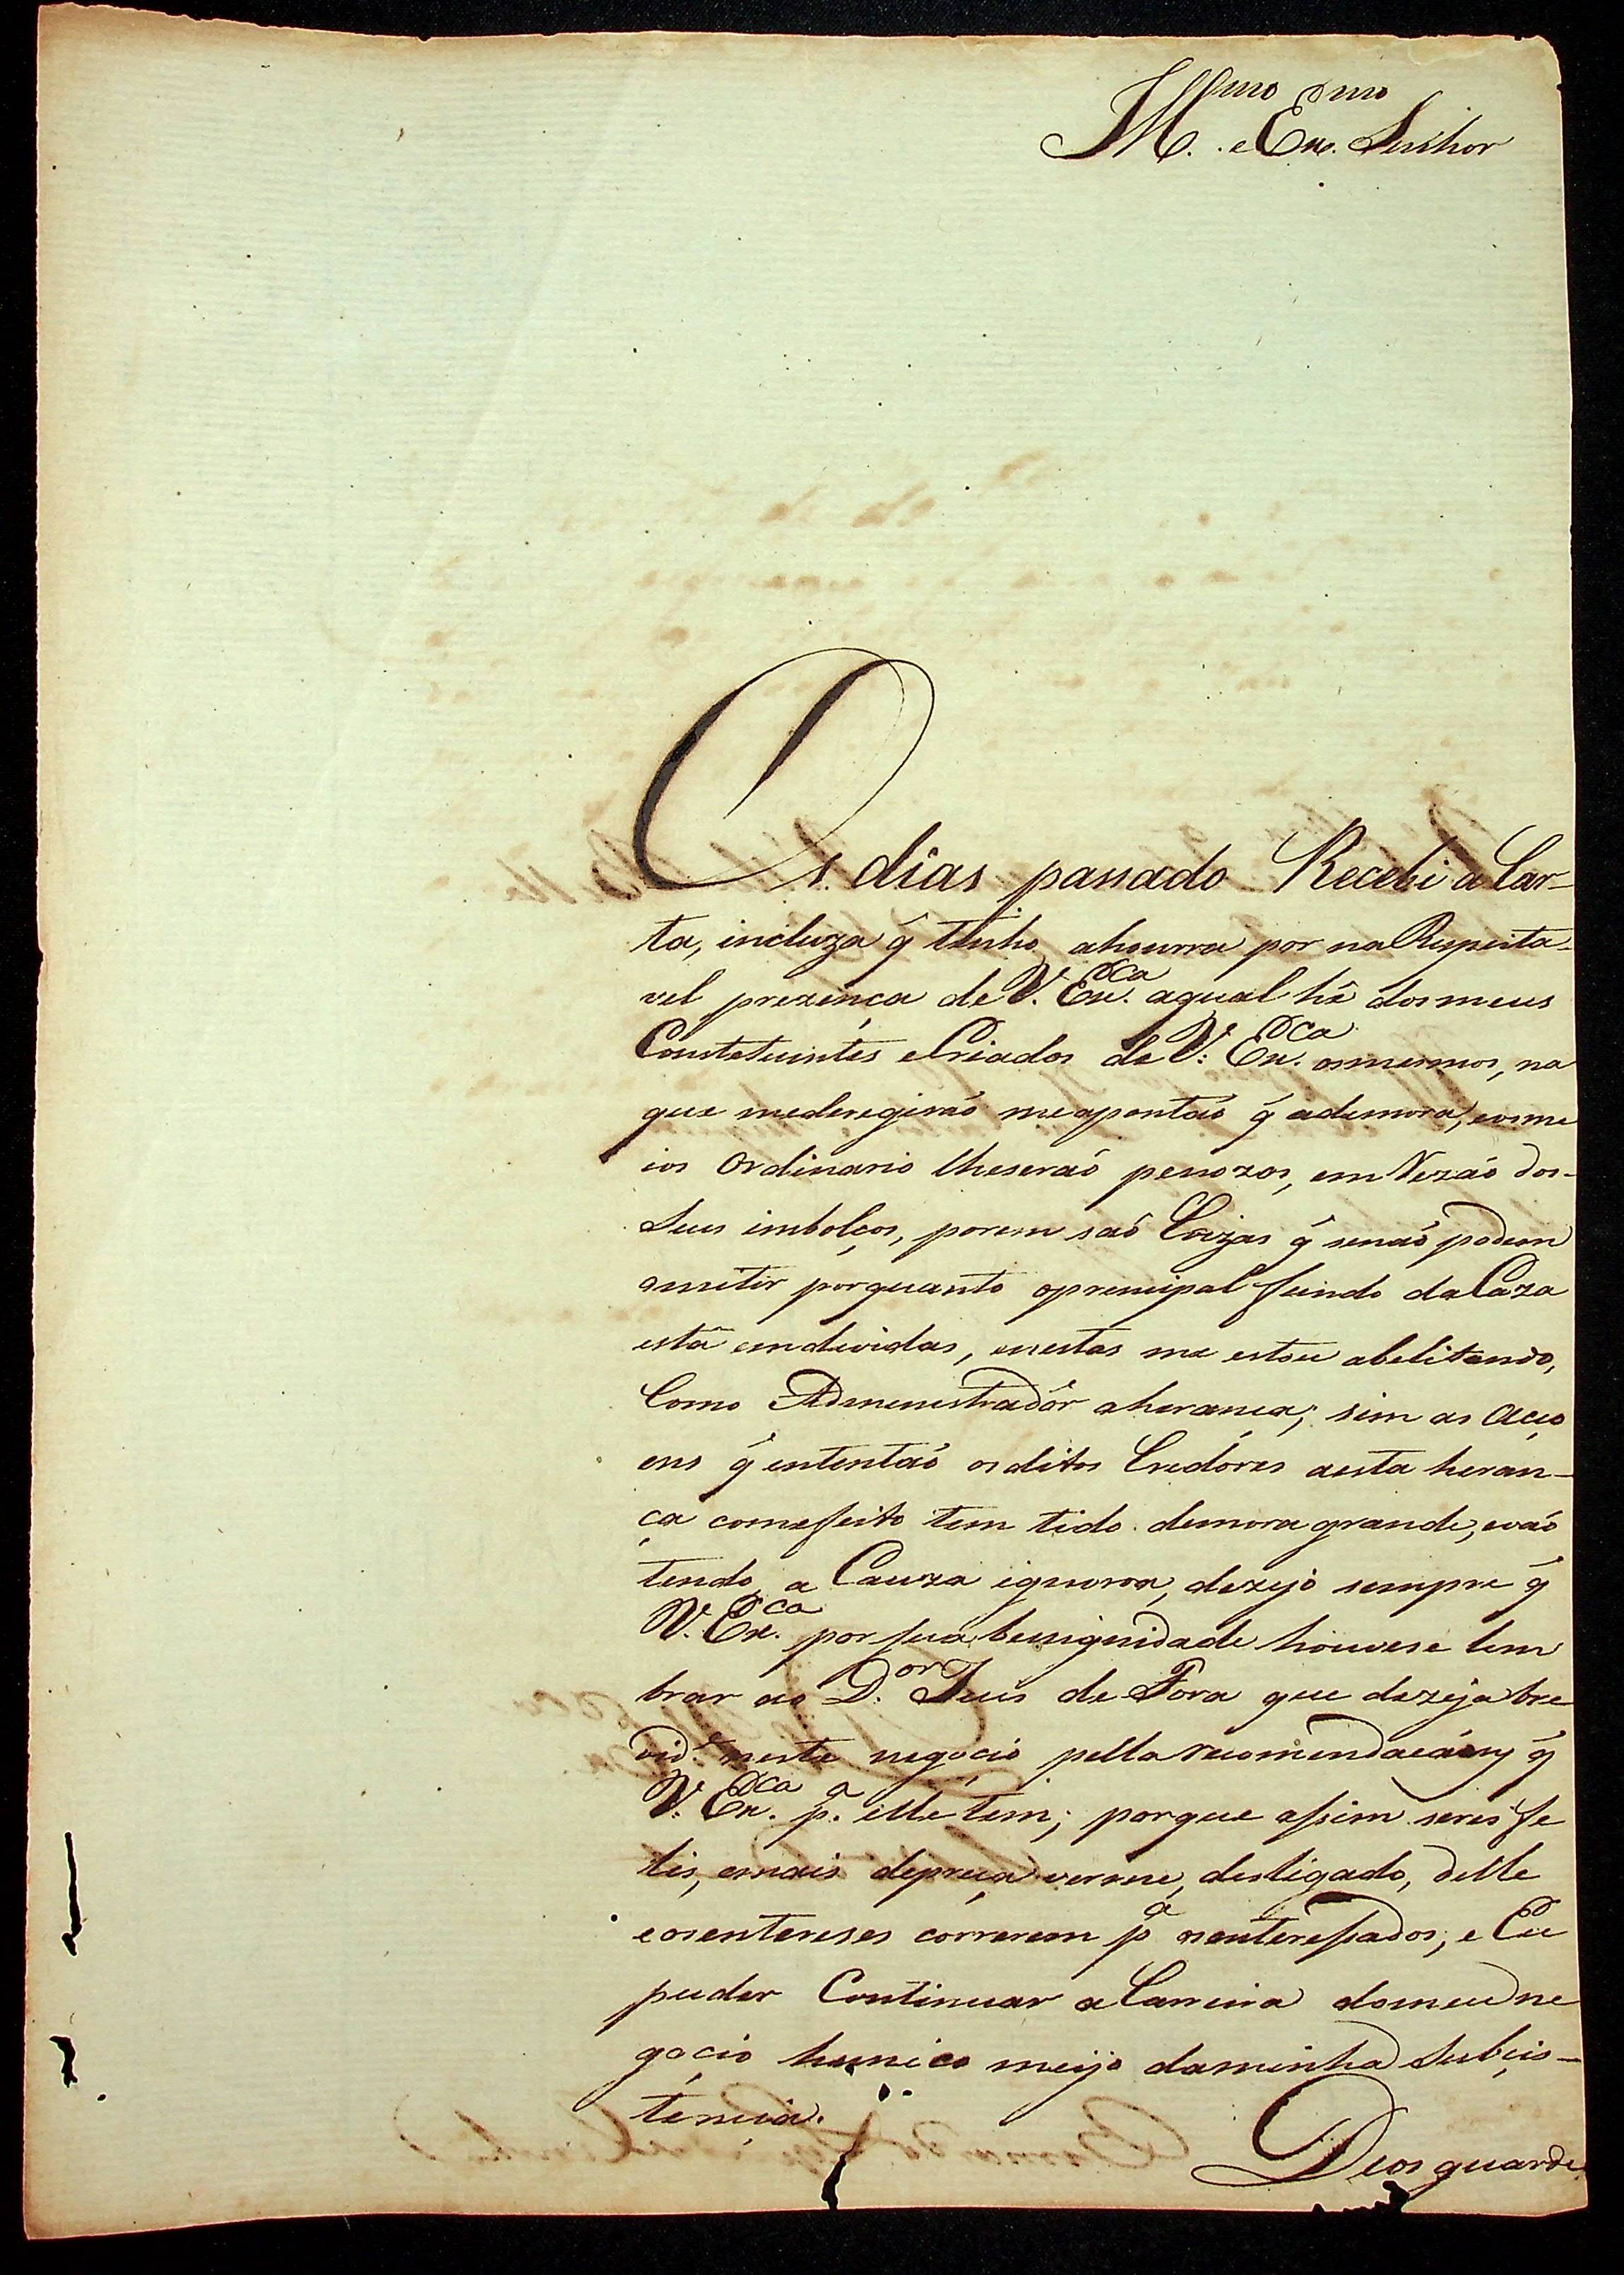 Illmo e Exmo Senhor
Os dias passado Recebi a Car-
ta, incluza q̃ tenho ahonrra por na Respeita-
vel prezença de V. Exca. aqual hé dos meus
Constetuintes eCriados de V: Exca. osmesmos, na
que mederegirão meapontão q̃ ademora, eosme
ios Ordinario lheserão penozos, em Rezão dos-
Seus imbolços, porem são Coizas q̃ senão podem
omitir porquanto oprencipal fundo daCaza
está emdividas, enestas me estou abelitando,
Como Admenestradôr aherança; sim as Acço
ens q̃ ententão osditos Credóres aesta heran-
ça comefeito tem tido demora grande, evão
tendo, a Cauza ignorra, dezejo sempre q̃
V. Exca. por sua benignidade houvese lem
brar ao D.or Juis de Fora que dezeja bre
vide. neste negocio pella recomendaçáoy q̃
V: Exca. pa. elle tem; porque assim serei fe
lis, emais depreça verme, desligado, delle
eosentereses correrem pa osenteressados, e Eu
puder Continuar aCarreira domeu ne
gocio hunico meijo daminha Subcis-
tencia.
Deos guarde